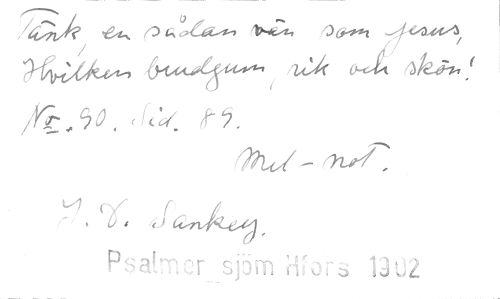 Tänk, en sådan vän som Jesus,
Hvilken brudgum, rik och skön!
No. 90. Sid. 89.
Mel-not.
I. D. Sankey.
Psalmer sjöm Hfors 1902